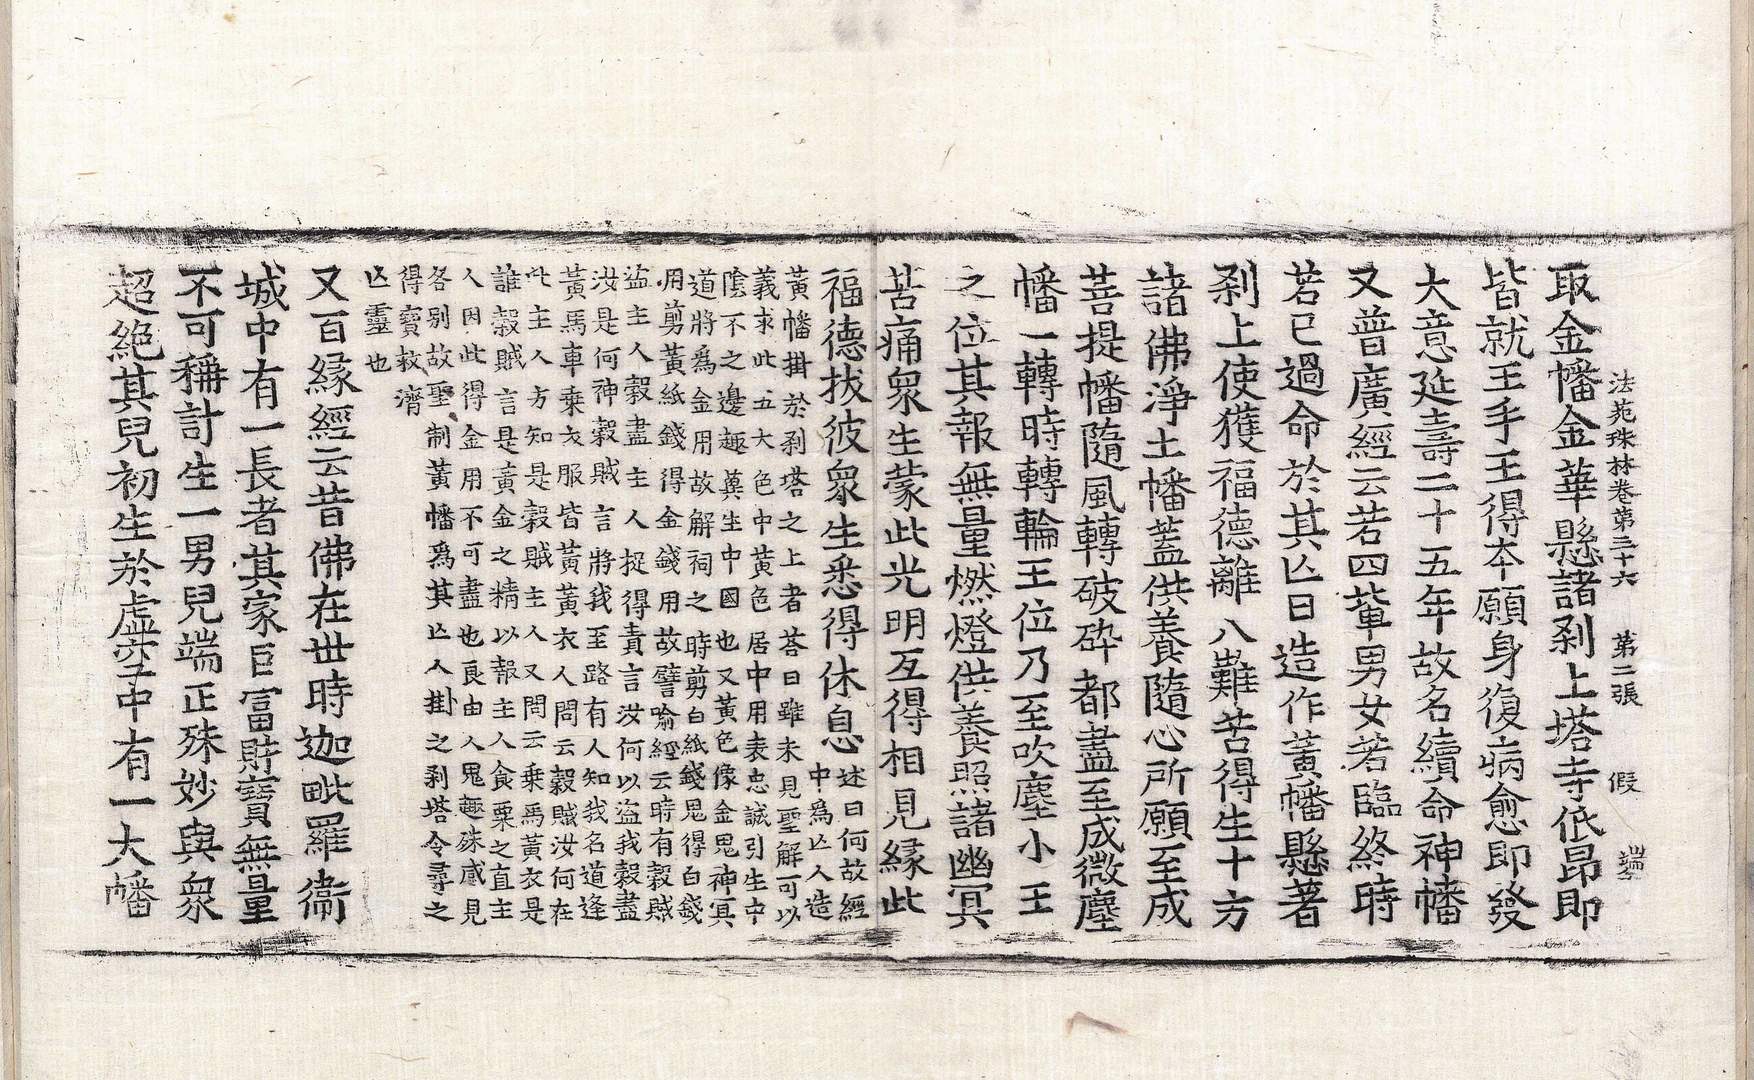 法苑珠林卷第三十六　第二張　假　端
取金幡金華懸諸刹上塔寺低昂即
皆就王手王得本願身復病愈即發
大意延壽二十五年故名續命神幡
又普廣經云若四輩男女若臨終時
若已過命於其亾日造作黃幡懸著
刹上使獲福德離八難苦得生十方
諸佛淨土幡蓋供養隨心所願至成
菩提幡隨風轉破碎都盡至成微塵
幡一轉時轉輪王位乃至吹塵小王
之位其報無量燃燈供養照諸幽冥
苦痛衆生蒙此光明互得相見緣此
福德拔彼衆生悉得休息
述曰何故經
中爲亾人造
黃幡掛於刹塔之上者荅曰雖未見聖解可以
義求此五大色中黃色居中用表忠誠引生中
陰不之邊趣莫生中國也又黃色像金鬼神冥
道將爲金用故解祠之時剪白紙錢鬼得白錢
用剪黃紙錢得金錢用故譬喻經云時有穀賊
盜主人穀盡主人捉得責言汝何以盜我穀盡
汝是何神穀賊言將我至路有人知我名道逢
黃馬車乗衣服皆黃黃衣人問云穀賊汝何在
此主人方知是穀賊主人又問云乗馬黃衣是
誰穀賊言是黃金之精以報主人食粟之直主
人因此得金用不可盡也良由人鬼趣殊感見
各別故聖制黃幡爲其亾人掛之刹塔令尋之
得寶救濟
亾靈也
又百緣經云昔佛在世時迦毗羅衞
城中有一長者其家巨富財寶無量
不可稱計生一男兒端正殊妙與衆
超絕其兒初生於虛空中有一大幡